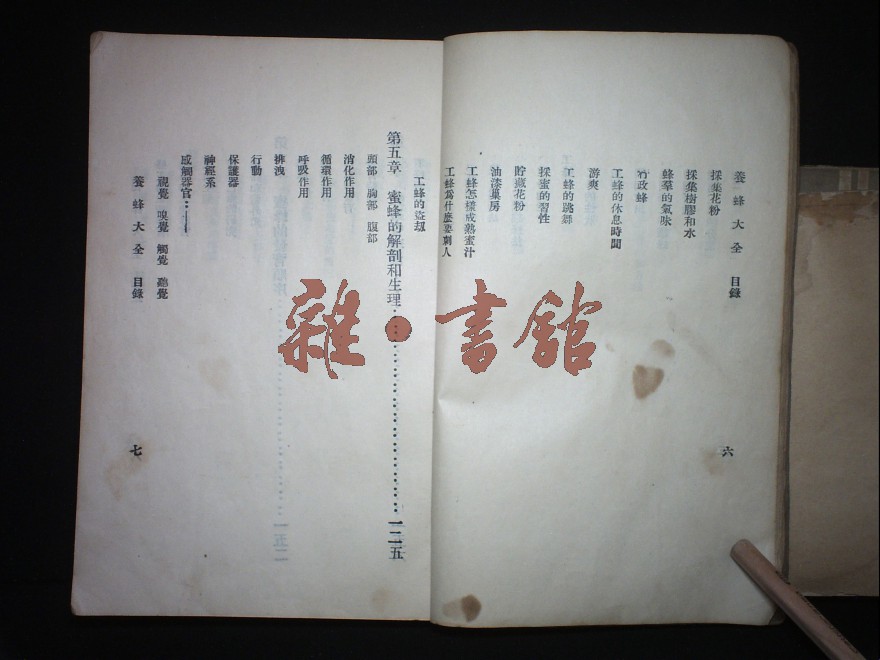 養蜂大全 目錄
六
採集花粉
採集樹膠和水
蜂羣的氣味
行政蜂
工蜂的休息時間
游爽
工蜂的跳舞
採蜜的習性
貯藏花粉
油漆巢房
工蜂怎樣成熟蜜汁
工蜂爲什麼要刺人
工蜂的盜刧
第五章 蜜蜂的解剖和生理……一二五
頭部 胸部 腹部
消化作用
循環作用
呼吸作用
排洩
行動
保護器
神經系
感觸器官:——
視覺 嗅覺 觸覺 聽覺
養蜂大全 目錄
七
雜·書館